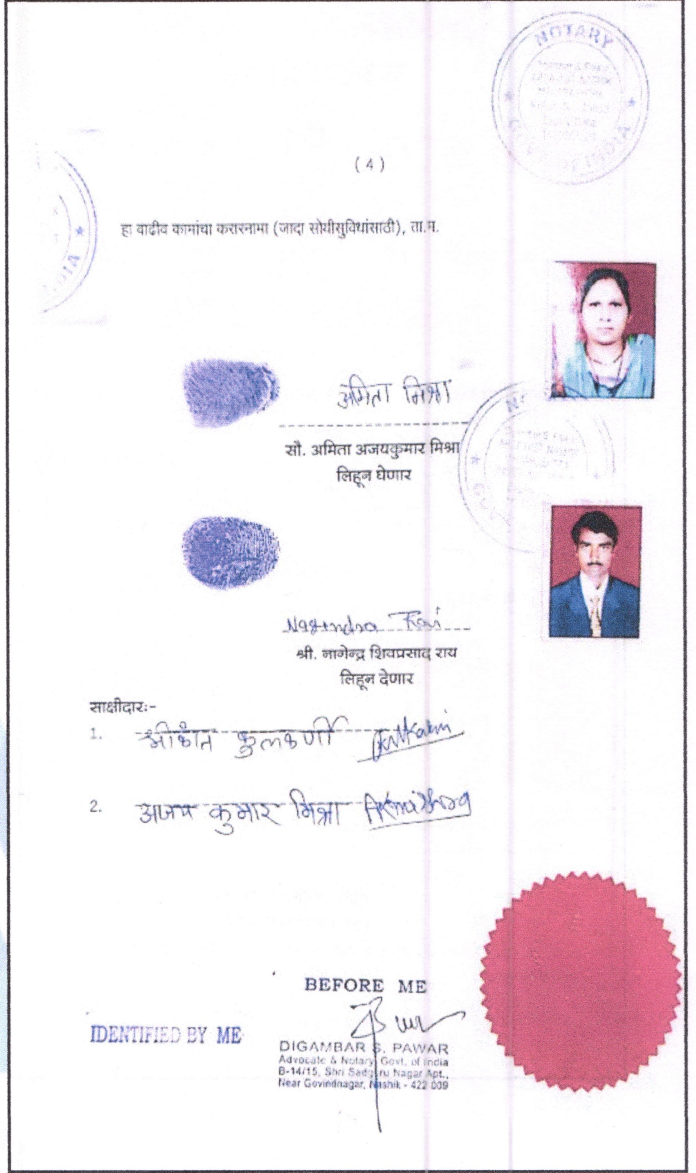 NOTARY
GOVT. OF INDIA
INDIA
(4)
हा वाढीव कामांचा करारनामा (जादा सोयीसुविधांसाठी), ता.म.
अमिता मिश्रा
सौ. अमिता अजयकुमार मिश्रा
लिहून घेणार
Nagendra Rai
श्री. नागेन्द्र शिवप्रसाद राय
लिहून देणार
साक्षीदारः-
1. श्रीकांत कुलकर्णी
2. अजय कुमार मिश्रा
BEFORE ME
IDENTIFIED BY ME
DIGAMBAR S. PAWAR
Advocate & Notary Govt. of India
B-14/15, Shri Sadguru Nagar Apt.,
Near Govindnagar, Nashik - 422 009